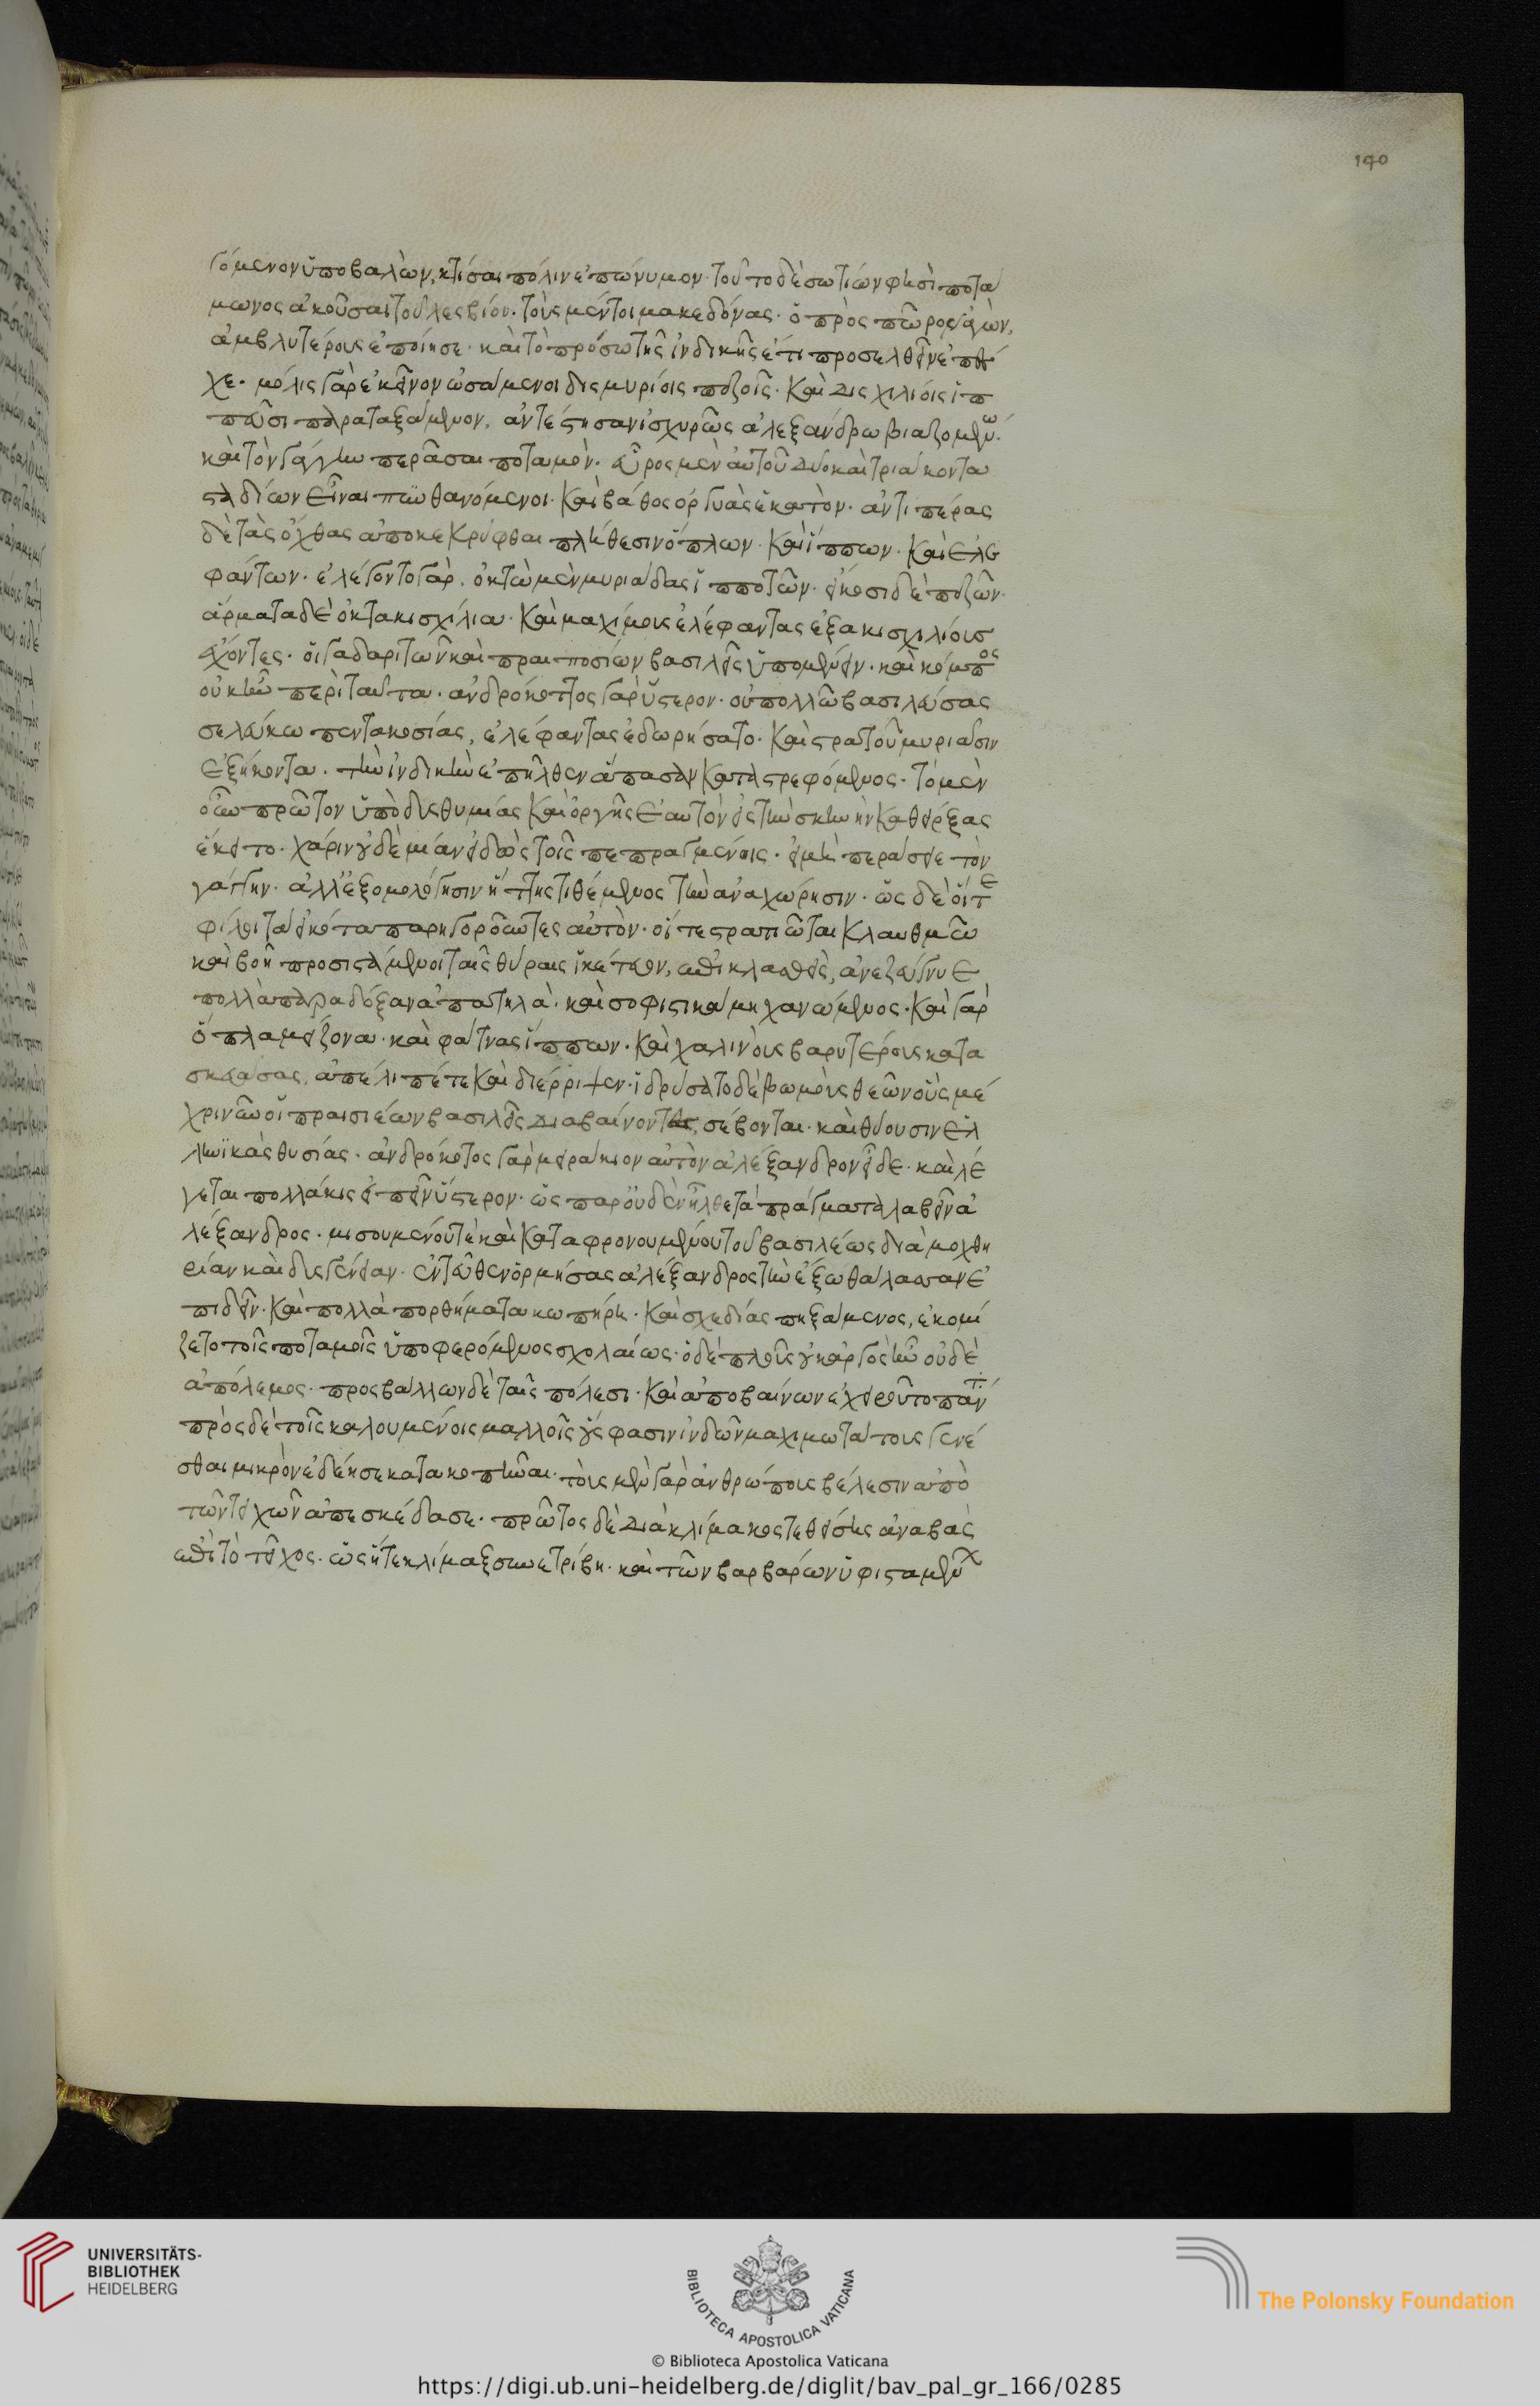 140
γόμενον ὑποβαλὼν, κτίσαι πόλιν ἐπώνυμον· τοῦτο δὲ σωτίων φησὶ ποτά
μωνος ἀκοῦσαι τοῦ λεσβίου· τοὺς μέντοι μακεδόνας· ὁ πρὸς πῶρον ἀγὼν,
ἀμβλυτέρους ἐποίησε· καὶ τὸ πρόσω τῆς ἰνδικῆς ἔτι προσελθεῖν ἐπέ
χε· μόλις γὰρ ἐκεῖνον ὠσάμενοι δισμυρίοις πεζοῖς· καὶ δισχιλίοις ἱπ
πεῦσι παραταξάμενον, ἀντέστησαν ἰσχυρῶς ἀλεξάνδρω βιαζομένω·
καὶ τὸν γάγγην περᾶσαι ποταμὸν· εὖρος μὲν αὐτοῦ δύο καὶ τριάκοντα
σταδίων εἶναι πυνθανόμενοι· καὶ βάθος ὀργυὰς ἑκατὸν· ἀντιπέρας
δὲ τὰς ὄχθας ἀποκεκρύφθαι πλήθεσιν ὅπλων· καὶ ἵππων· καὶ ἐλε
φάντων· ἐλέγοντο γὰρ, ὀκτὼ μὲν μυριάδας ἱπποτῶν· εἴκοσι δὲ πεζῶν·
ἅρματα δὲ ὀκτακισχίλια· καὶ μαχίμους ἐλέφαντας ἑξακισχιλίους
ἔχοντες· οἱ γαδαριτῶν καὶ πραιποσίων βασιλεῖς ὑπομένειν· καὶ κόμπος
οὐκ ἦν περὶ ταῦτα· ἀνδρόκοττος γὰρ ὕστερον· οὐ πολλῶ βασιλεύσας
σελεύκω πεντακοσίας, ἐλέφαντας ἐδωρήσατο· καὶ στρατοῦ μυριάσιν
ἑξήκοντα· τὴν ἰνδικὴν ἐπῆλθεν ἅπασαν καταστρεφόμενος· τὸ μὲν
οὖν πρῶτον ὑπὸ δυσθυμίας καὶ ὀργῆς ἑαυτὸν εἰς τὴν σκηνὴν καθείρξας
ἔκειτο· χάριν οὐδὲ μίαν εἰδὼς τοῖς πεπραγμένοις· εἰ μὴ περάσειε τὸν
γάγγην· ἀλλ' ἐξομολόγησιν ἥττης τιθέμενος τὴν ἀναχώρησιν· ὡς δὲ οἵ τε
φίλοι τὰ εἰκότα παρηγοροῦντες αὐτὸν· οἵ τε στρατιῶται κλαυθμῶ
καὶ βοῆ προσιστάμενοι ταῖς θύραις ἱκέτευον, ἐπικλασθεὶς, ἀνεζεύγνυε
πολλὰ παράδοξα ἀπατηλὰ· καὶ σοφιστικὰ μηχανώμενος· καὶ γὰρ
ὅπλα μείζονα· καὶ φάτνας ἵππων· καὶ χαλινοὺς βαρυτέρους κατα
σκευάσας, ἀπέλιπέ τε καὶ διέρριψεν· ἱδρύσατο δὲ βωμοὺς θεῶν οὓς μέ
χρι νῦν οἱ πραισιέων βασιλεῖς διαβαίνοντες, σέβονται· καὶ θύουσιν ἑλ
ληνϊκὰς θυσίας· ἀνδρόκοτος γὰρ μειράκιον αὐτὸν ἀλέξανδρον εἶδε· καὶ λέ
γεται πολλάκις εἰπεῖν ὕστερον· ὡς παρ' οὐδὲν ἦλθε τὰ πράγματα λαβεῖν ἀ
λέξανδρος· μισουμένου τε καὶ καταφρονουμένου τοῦ βασιλέως διὰ μοχθη
ρίαν καὶ δυσγένειαν· ἐντεῦθεν ὁρμήσας ἀλέξανδρος τὴν ἔξω θάλασσαν ἐ
πιδεῖν· καὶ πολλὰ πορθήματα κωπήρη· καὶ σχεδίας πηξάμενος, ἐκομί
ζετο τοῖς ποταμοῖς ὑποφερόμενος σχολαίως· ὁ δὲ πλοῦς οὐκ ἀργὸς ἦν οὐδὲ
ἀπόλεμος· προσβάλλων δὲ ταῖς πόλεσι· καὶ ἀποβαίνων ἐχειροῦτο πάντ
πρὸς δὲ τοῖς καλουμένοις μαλλοῖς οὕς φασιν ἰνδῶν μαχιμωτάτους γενέ
σθαι μικρὸν ἐδέησε κατακοπῆναι· τοὺς μὲν γὰρ ἀνθρώπους βέλεσιν ἀπὸ
τῶν τειχῶν ἀπεσκέδασε· πρῶτος δὲ διὰ κλίμακος τεθείσης ἀναβὰς
ἐπὶ τὸ τεῖχος· ὡς ἥ τε κλίμαξ συνετρίβη· καὶ τῶν βαρβάρων ὑφισταμένων
UNIVERSITÄTS-
BIBLIOTHEK
HEIDELBERG
BIBLIOTECA APOSTOLICA VATICANA
The Polonsky Foundation
© Biblioteca Apostolica Vaticana
https://digi.ub.uni-heidelberg.de/diglit/bav_pal_gr_166/0285